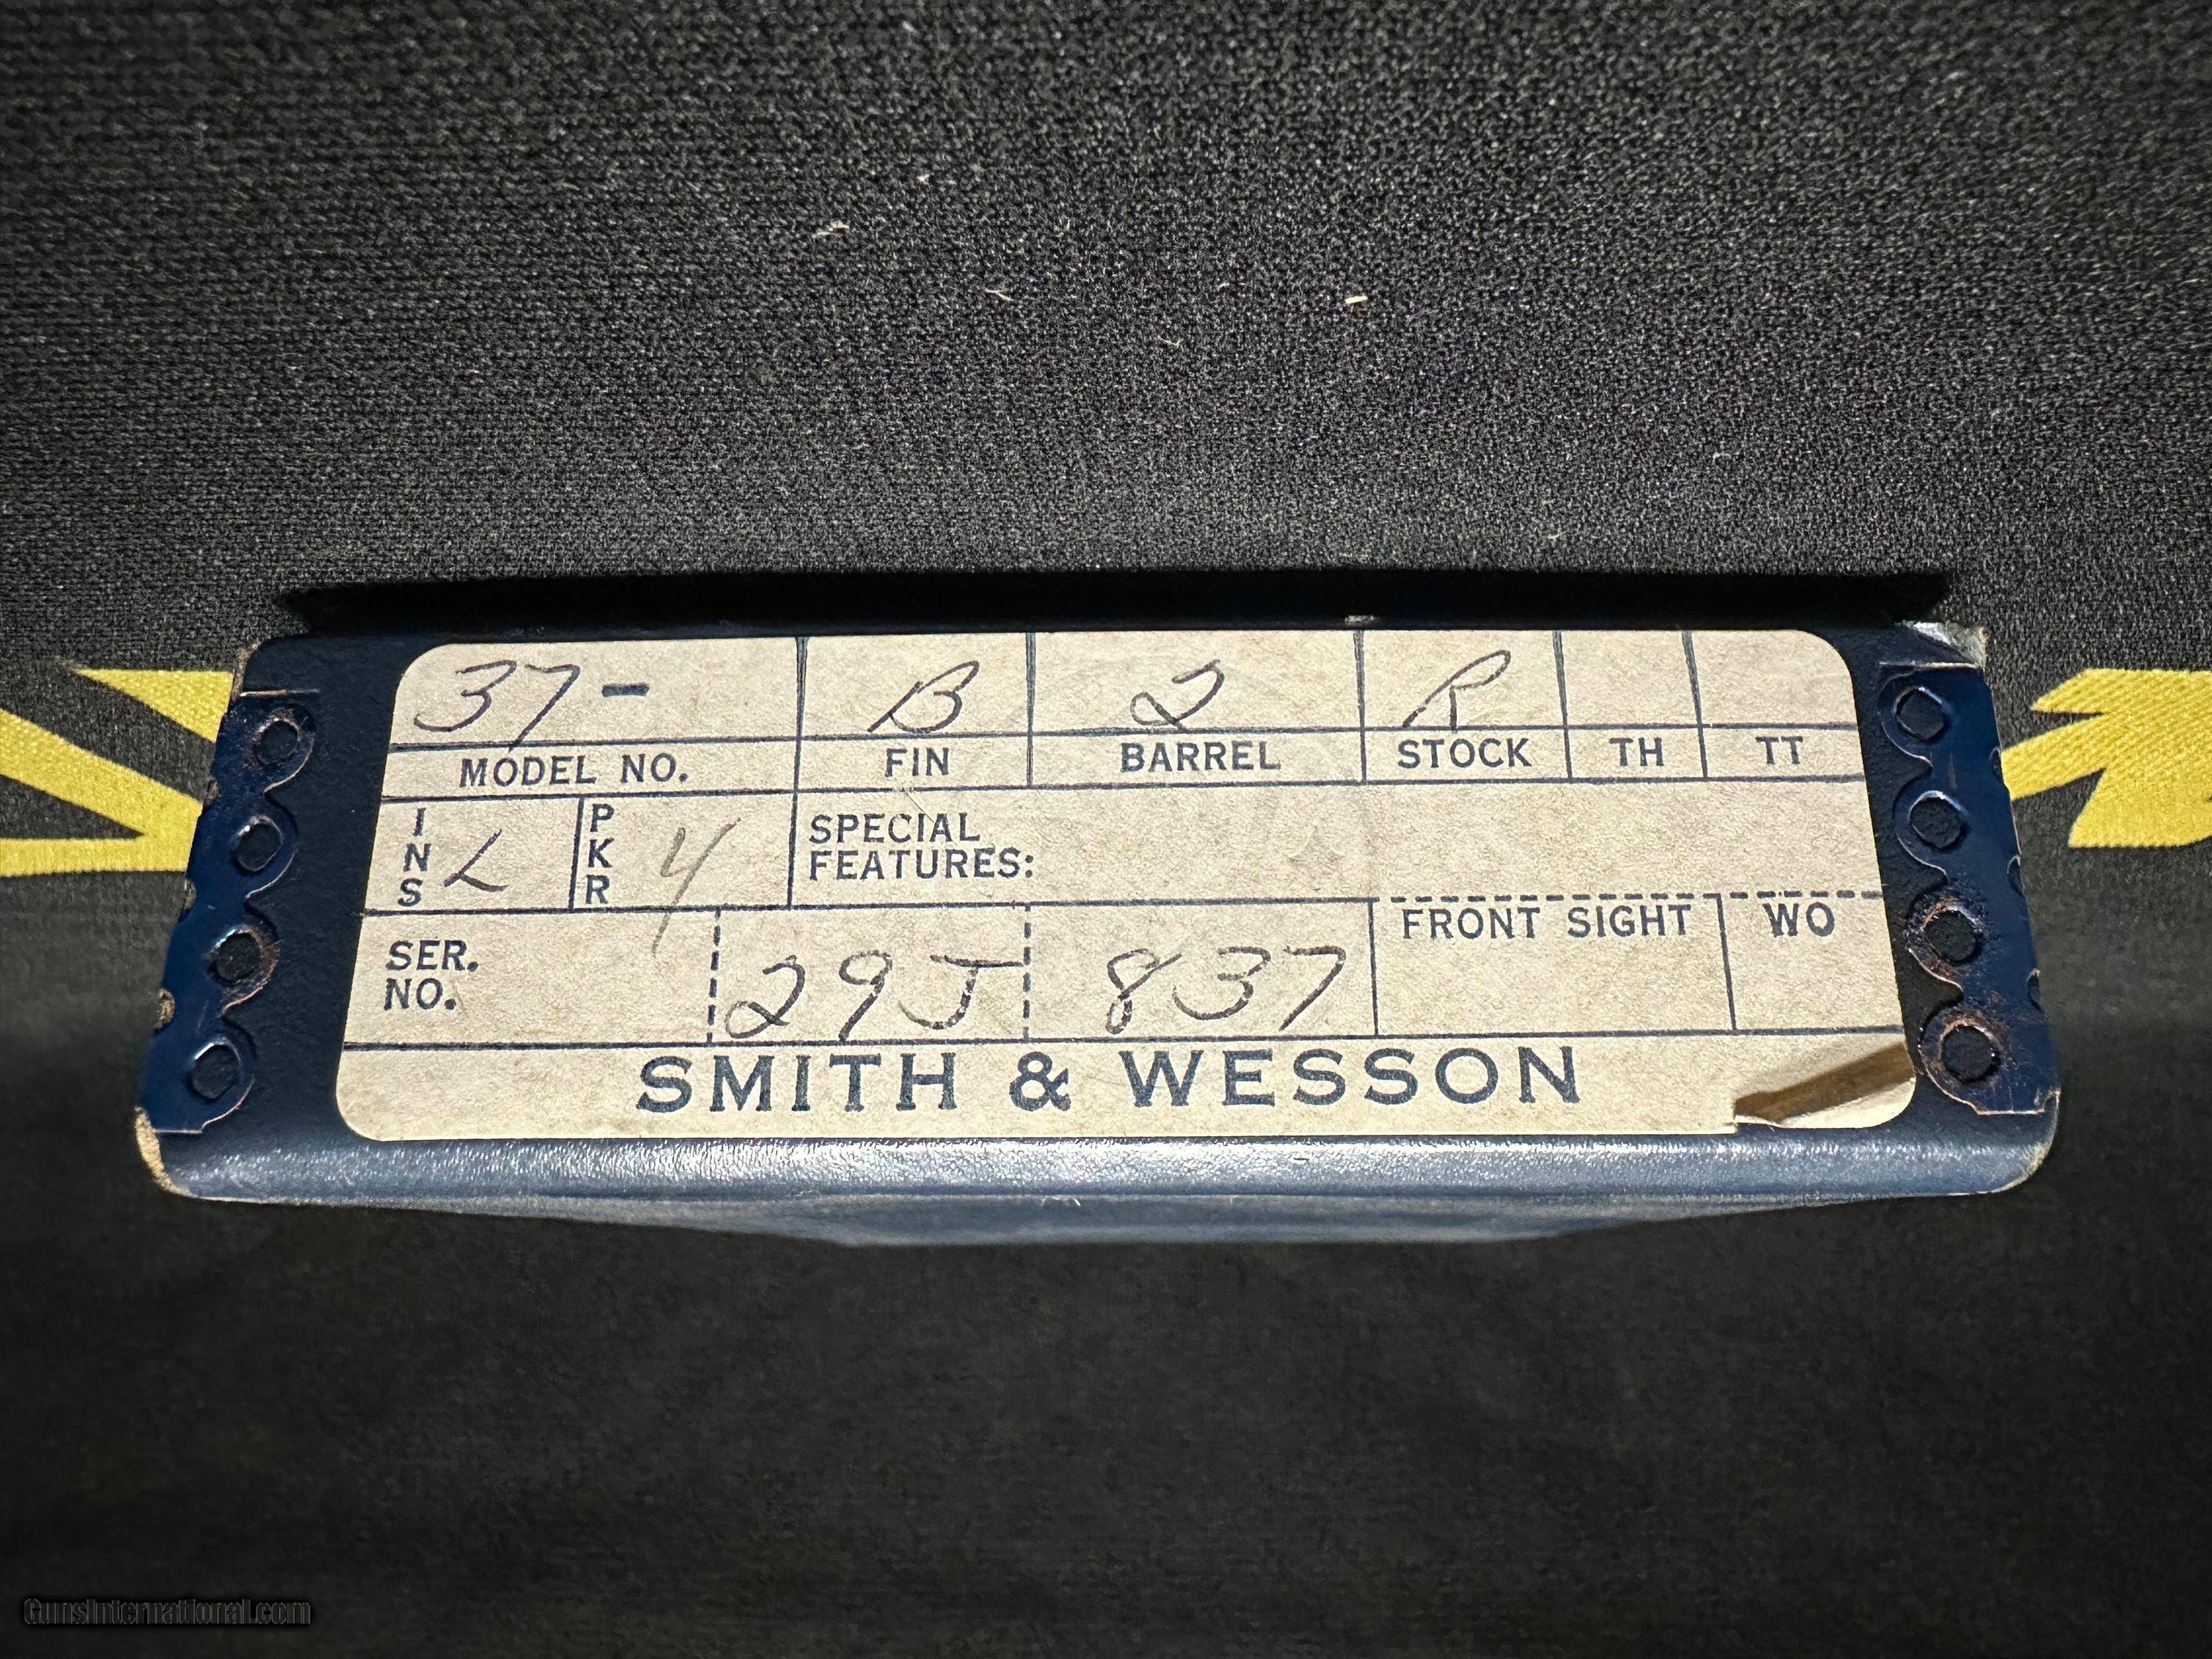 37- B 2 R
MODEL NO. FIN BARREL STOCK TH TT
INS L PKR 4 SPECIAL
FEATURES:
FRONT SIGHT WO
SER.
NO. 29J 837
SMITH & WESSON
GunsInternational.com